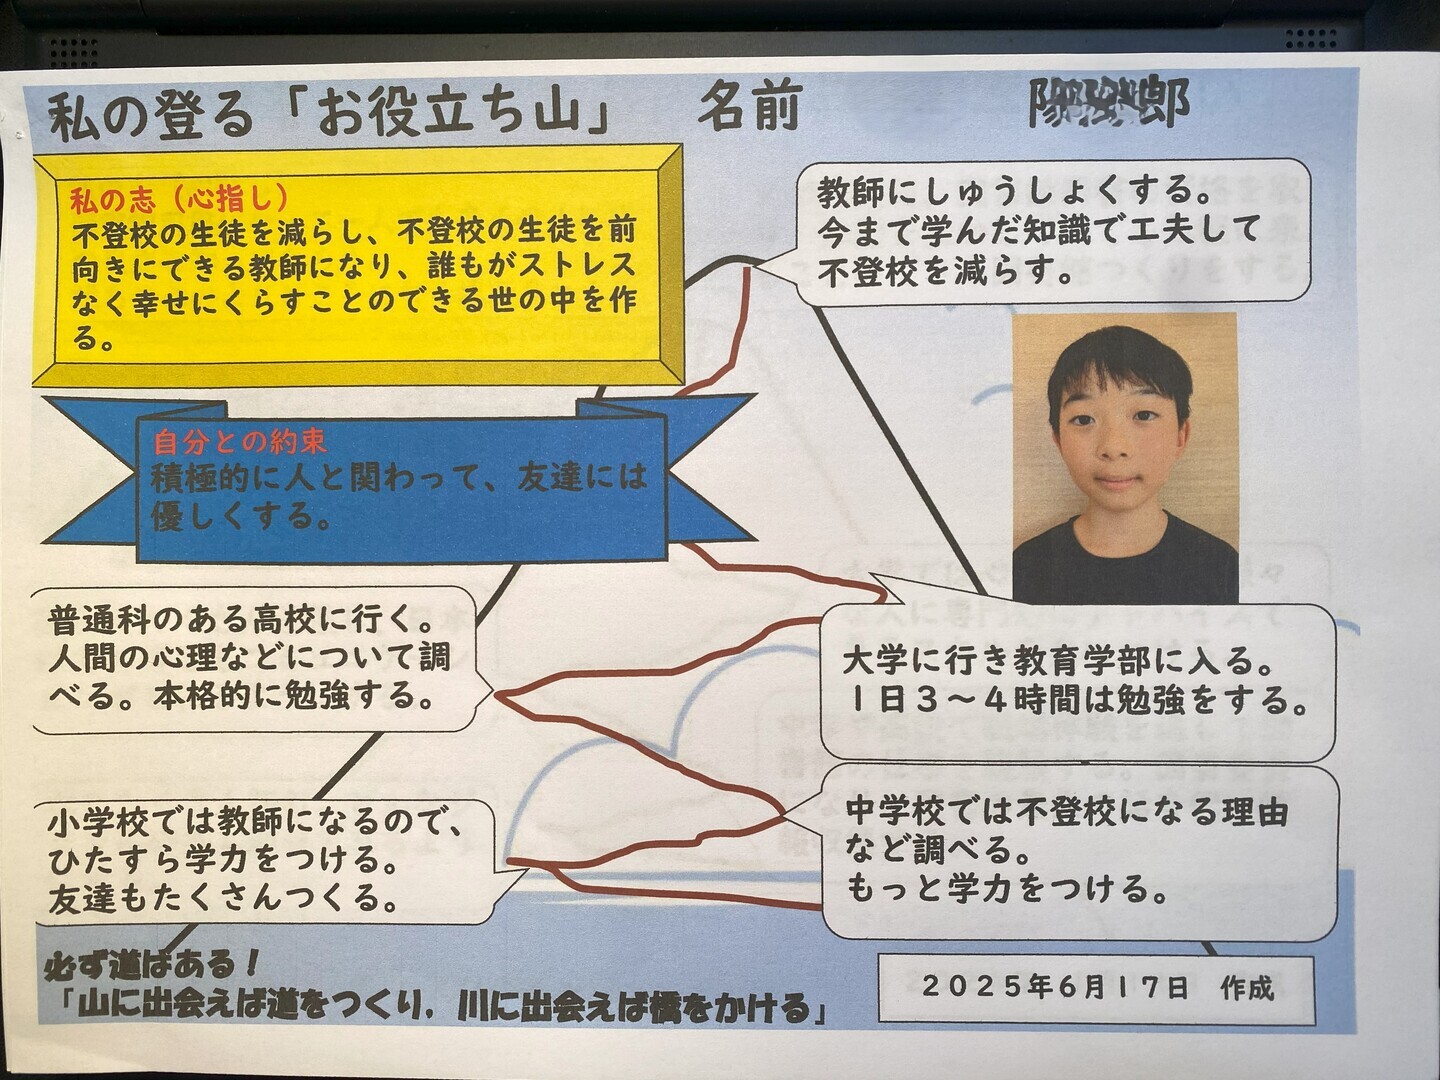 私の登る「お役立ち山」 名前
私の志（心指し）
不登校の生徒を減らし、不登校の生徒を前
向きにできる教師になり、誰もがストレス
なく幸せにくらすことのできる世の中を作
る。
教師にしゅうしょくする。
今まで学んだ知識で工夫して
不登校を減らす。
自分との約束
積極的に人と関わって、友達には
優しくする。
普通科のある高校に行く。
人間の心理などについて調
べる。本格的に勉強する。
大学に行き教育学部に入る。
１日３～４時間は勉強をする。
小学校では教師になるので、
ひたすら学力をつける。
友達もたくさんつくる。
中学校では不登校になる理由
など調べる。
もっと学力をつける。
必ず道はある！
「山に出会えば道をつくり，川に出会えば橋をかける」
２０２５年６月１７日 作成